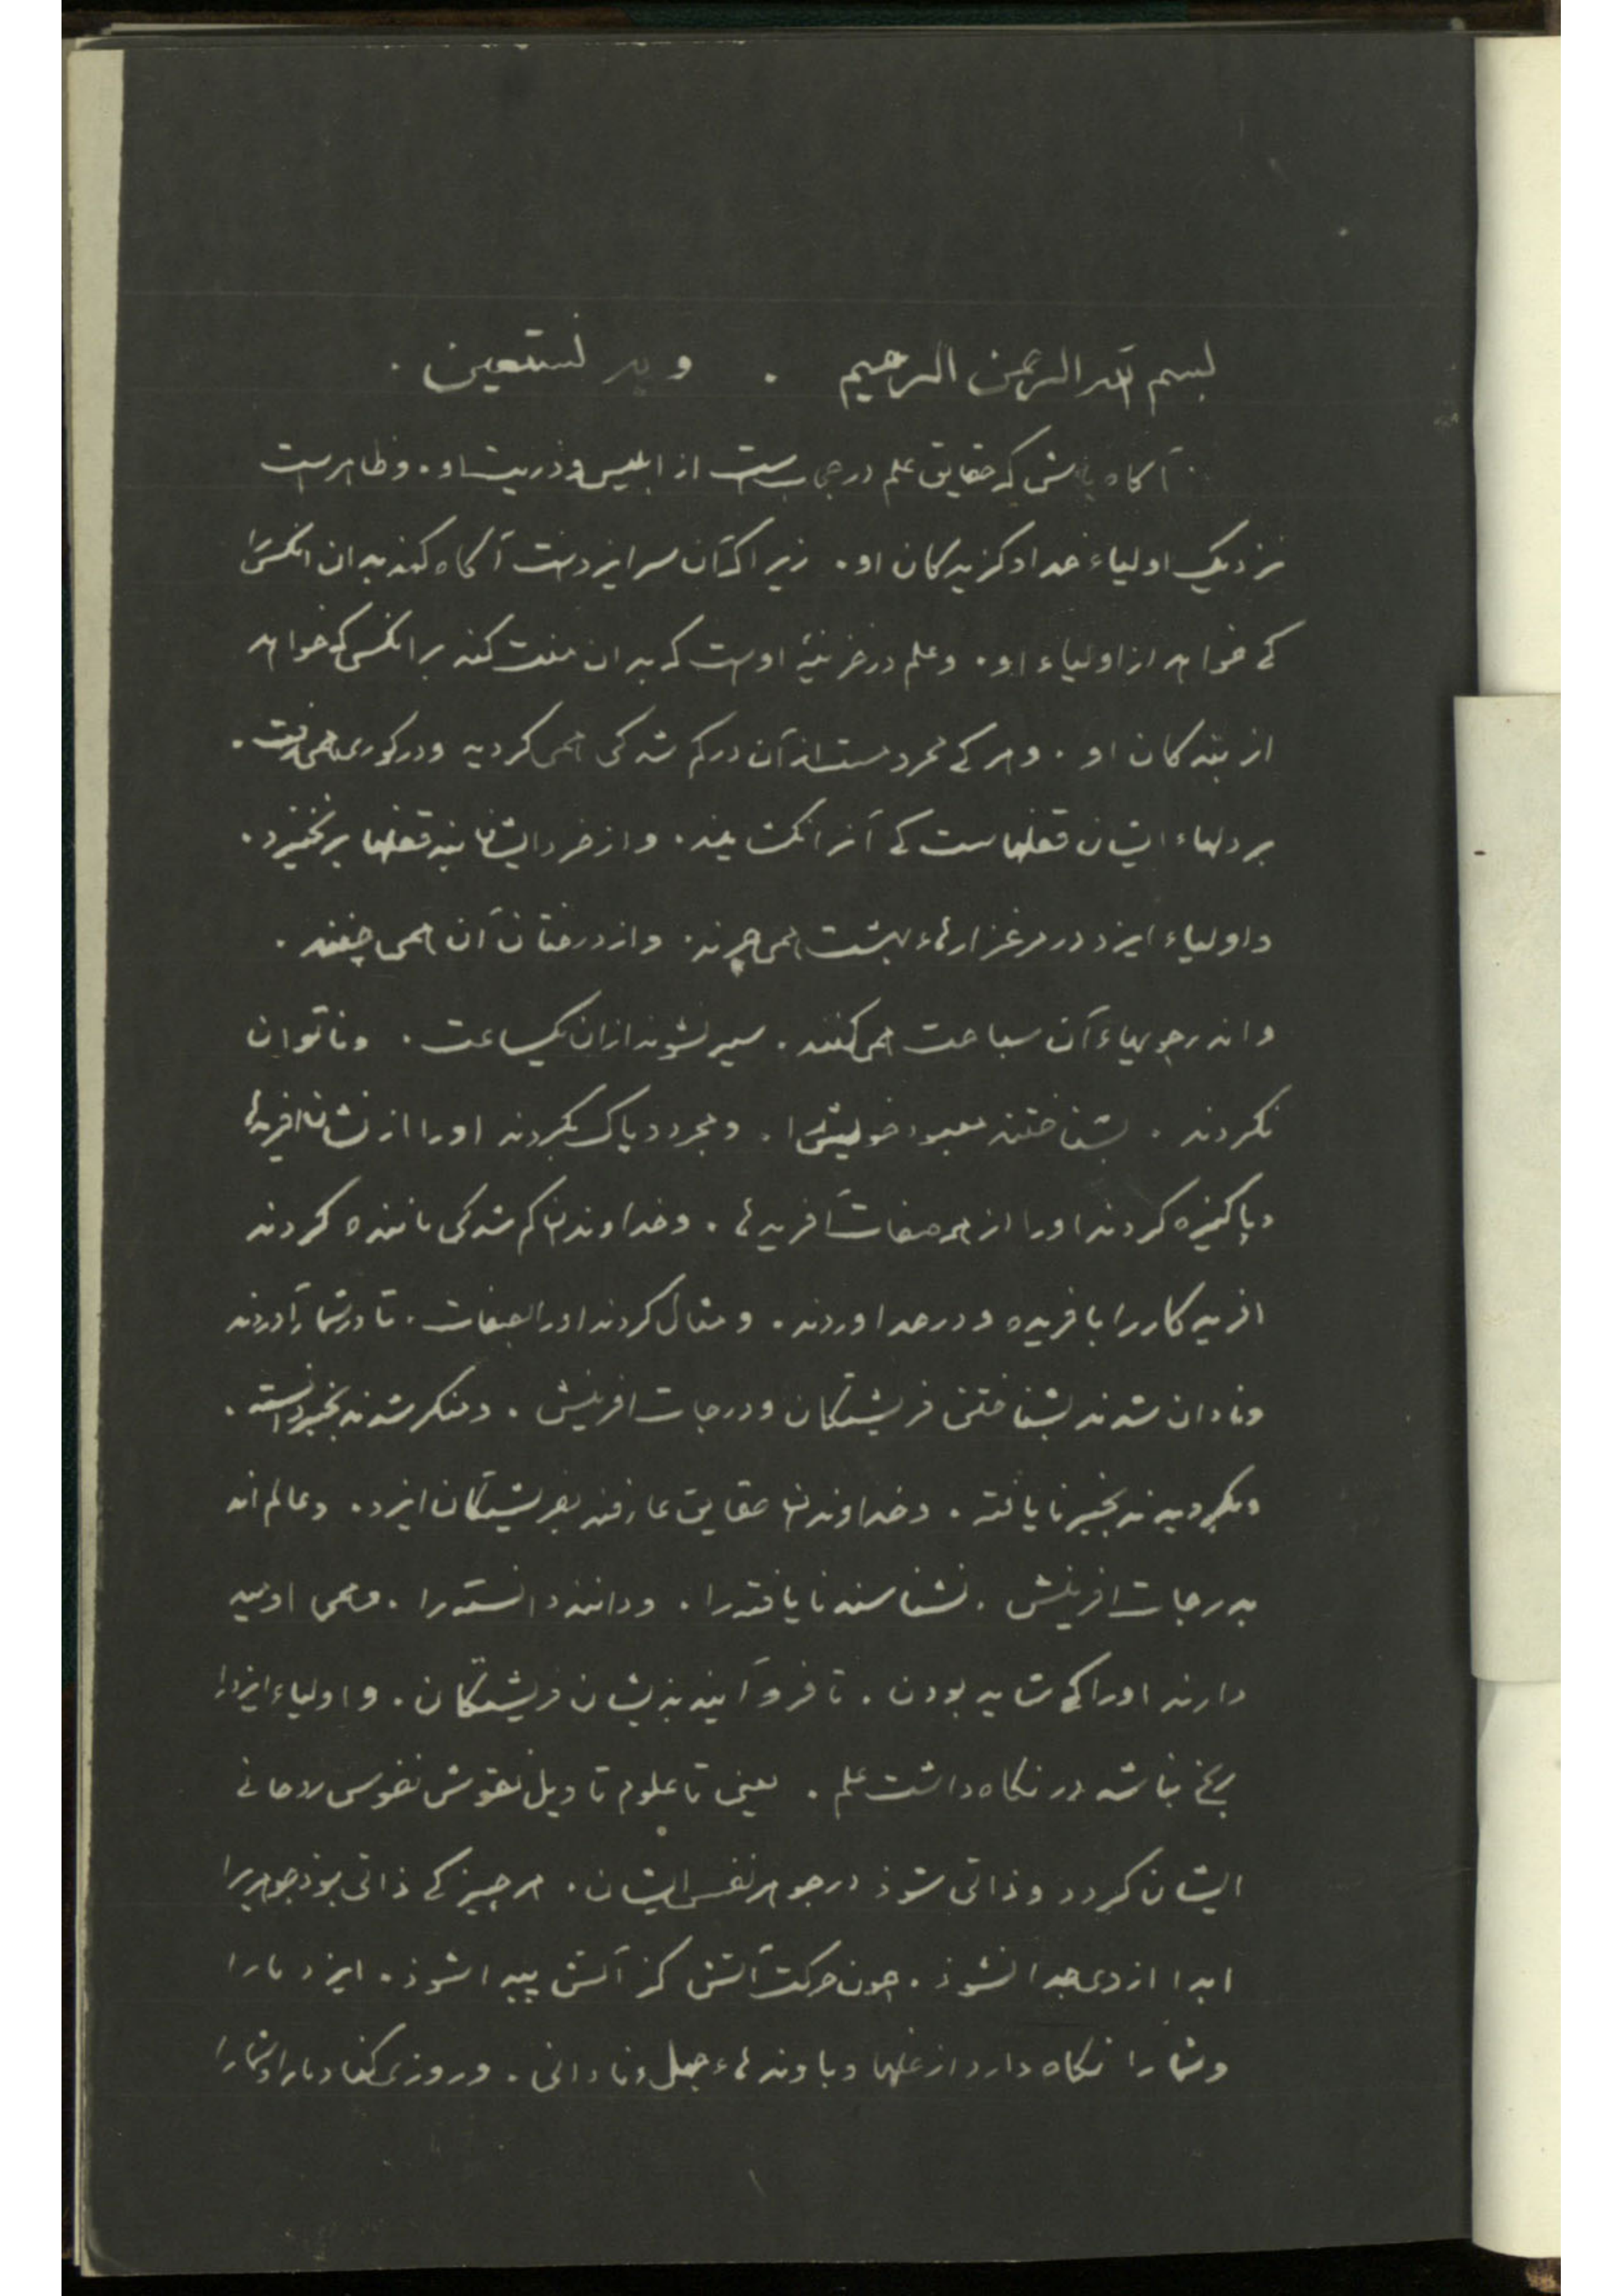 بسم الله الرحمن الرحیم . وبه نستعین .
آکاه باش که حقایق علم در حجاب است از ابلیس و ذریت او . و ظاهرست
نزدیک اولیاء خدا و کزیدکان او . زیراک آن سر ایزدست آکاه کند بدان آنکس را
کی خواهد از اولیاء او . و علم در خزینهٔ اوست که بدان منت کند بر انکس که خواهد
از بندکان او . و هر کی محرومست از آن در کم شدکی همی کردد و در کوری همی رفت .
بر دلهاء ایشان قفلهاست کی آنرا نکشایند . و از خرد ایشان بند قفلها برنخیزد .
و اولیاء ایزد در مرغزارهاء بهشت همی چرند . و از درختان آن همی چنند .
و اندر جویهاء آن سباحت همی کنند . سیر نشوند از ان یکساعت . و ناتوان
نکردند . بشناختند معبود خویش را . و مجرد و پاک بکردند او را از نشان افریدها
و پاکیزه کردند او را از هر صفات آفریدها . و خداوندان کم شدکی ماننده کردند
افریدکار را بافریده و در حد اوردند . و مثال کردند او را بصفات . تا در شمار آوردند
و نادان شدند بشناختن فریشتکان و درجات افرینش . و منکر شدند بچیز دانسته .
و بکرویدند بچیز نایافته . و خداوندان حقایق عارفند بفریشتکان ایزد . و عالم اند
بدرجات افرینش . نشناسند نایافته را . و دانند دانسته را . و همی اومید
دارند او را کی شاید بودن . تا فرو آیند بذیشان فریشتکان . و اولیاء ایزد را
رنج نباشد در نکاه داشت علم . یعنی تا علوم تاویل نقوش نفوس روحانی
ایشان کردد و ذاتی شوذ در جوهر نفس ایشان . هر چیز کی ذاتی بوذ جوهر را
ابدا از وی جدا نشوذ . چون حرکت آتش کز آتش پیدا شوذ . ایزد ما را
و شما را نکاه دارد از غلها و باوندهاء جهل و نادانی . و روزی کناد ما را و شما را